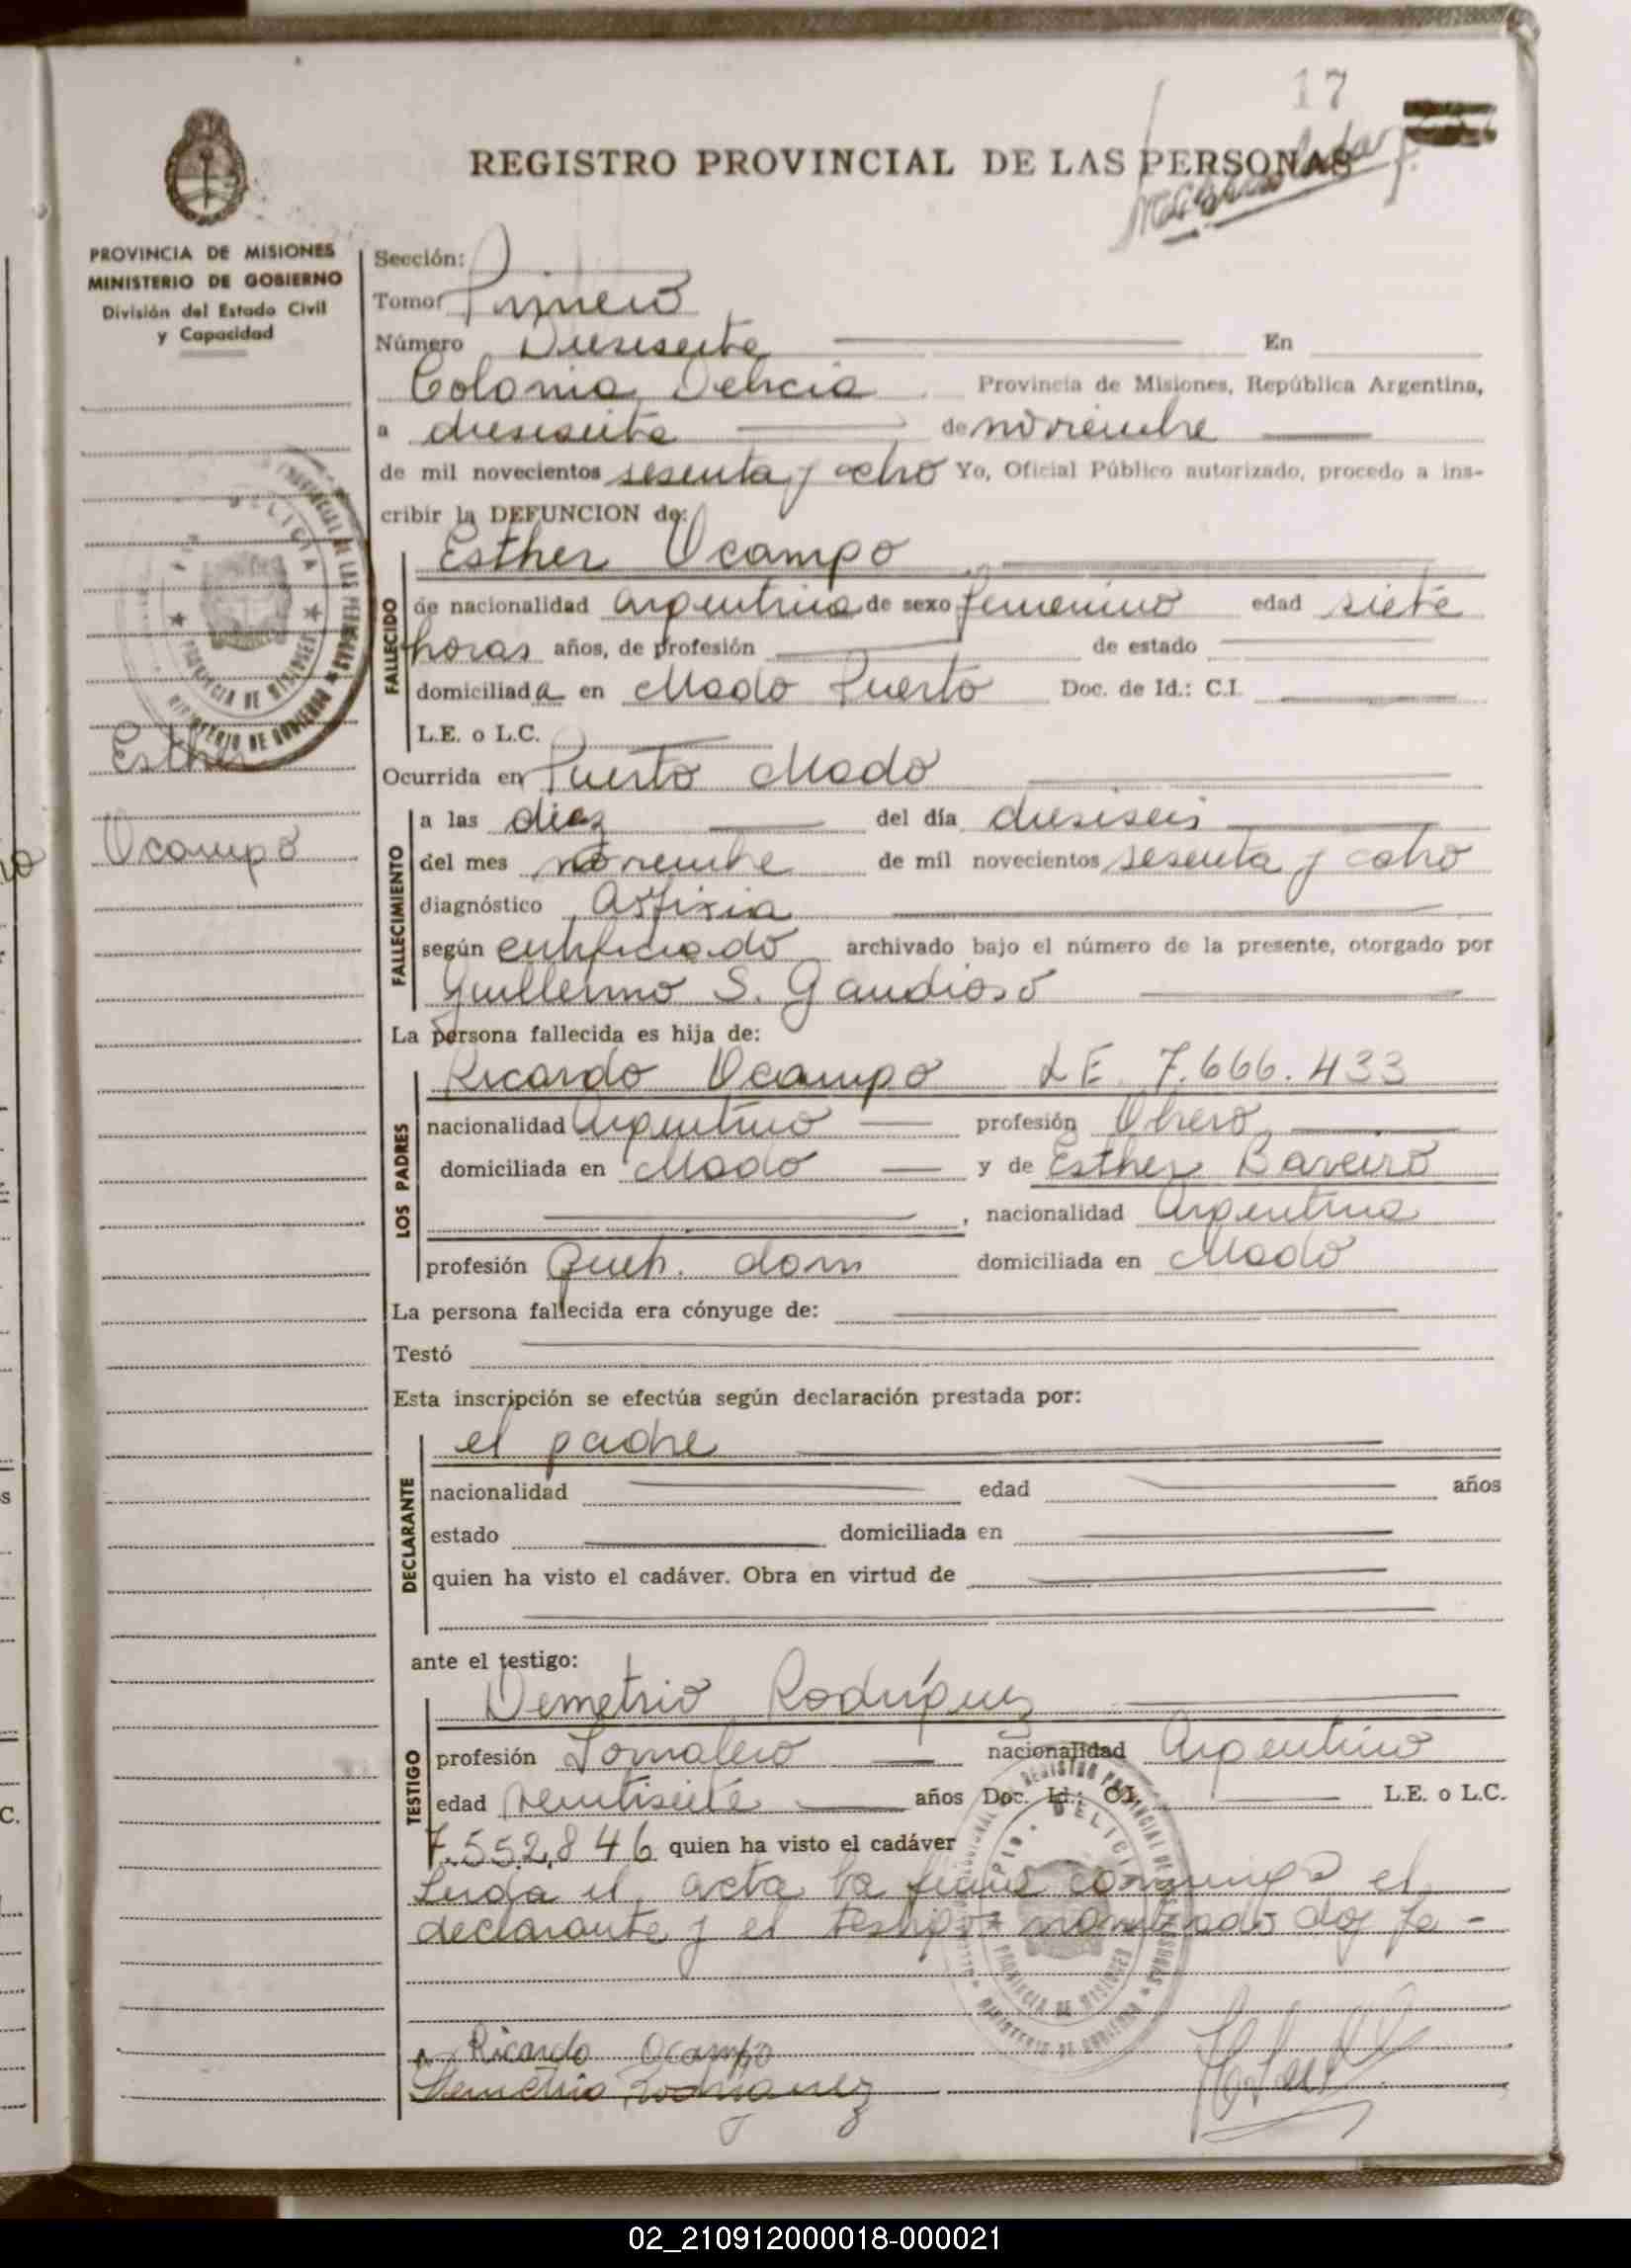 17
REGISTRO PROVINCIAL DE LAS PERSONAS
PROVINCIA DE MISIONES
MINISTERIO DE GOBIERNO
División del Estado Civil
y Capacidad
Esther
Ocampo
Sección:
Tomo: Primero
Número Diesisiete En
Colonia Delicia Provincia de Misiones, República Argentina,
a diesisiete de noviembre
de mil novecientos sesenta y ocho Yo, Oficial Público autorizado, procedo a ins-
cribir la DEFUNCION de:
FALLECIDO
Esther Ocampo
de nacionalidad argentina de sexo femenino edad siete
horas años, de profesión de estado
domiciliada en Mado Puerto Doc. de Id.: C.I.
L.E. o L.C.
Ocurrida en Puerto Mado
FALLECIMIENTO
a las diez del día diesiseis
del mes noviembre de mil novecientos sesenta y ocho
diagnóstico Asfixia
según certificado archivado bajo el número de la presente, otorgado por
Guillermo S. Gaudioso
La persona fallecida es hija de:
LOS PADRES
Ricardo Ocampo LE 7.666.433
nacionalidad Argentino profesión Obrero
domiciliada en Mado y de Esther Baveiro
, nacionalidad Argentina
profesión Queh. dom domiciliada en Mado
La persona fallecida era cónyuge de:
Testó
Esta inscripción se efectúa según declaración prestada por:
DECLARANTE
el padre
nacionalidad edad años
estado domiciliada en
quien ha visto el cadáver. Obra en virtud de
ante el testigo:
TESTIGO
Demetrio Rodríguez
profesión Jornalero nacionalidad Argentino
edad ventisiete años Doc. Id.: C.I. L.E. o L.C.
7.552,846 quien ha visto el cadáver
Leida el acta la firma conmigo el
declarante y el testigo nombrado doy fe -
Ricardo Ocampo
Demetrio Rodriguez
02_210912000018-000021